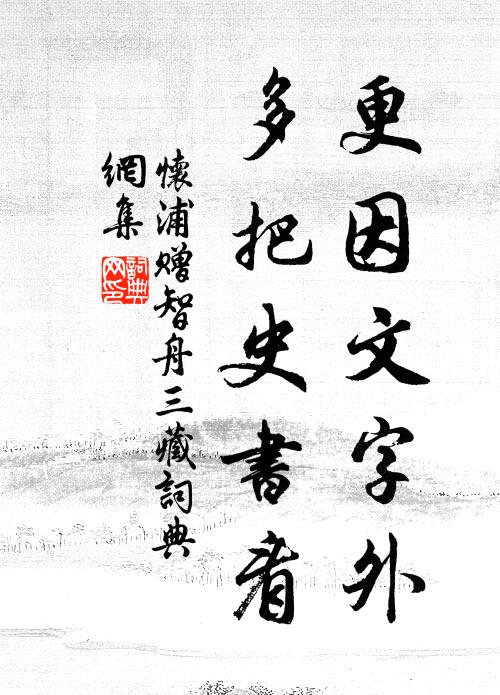 更因文字外
多把史書看
懷浦贈智舟三藏詞典
網集
詞典
网印